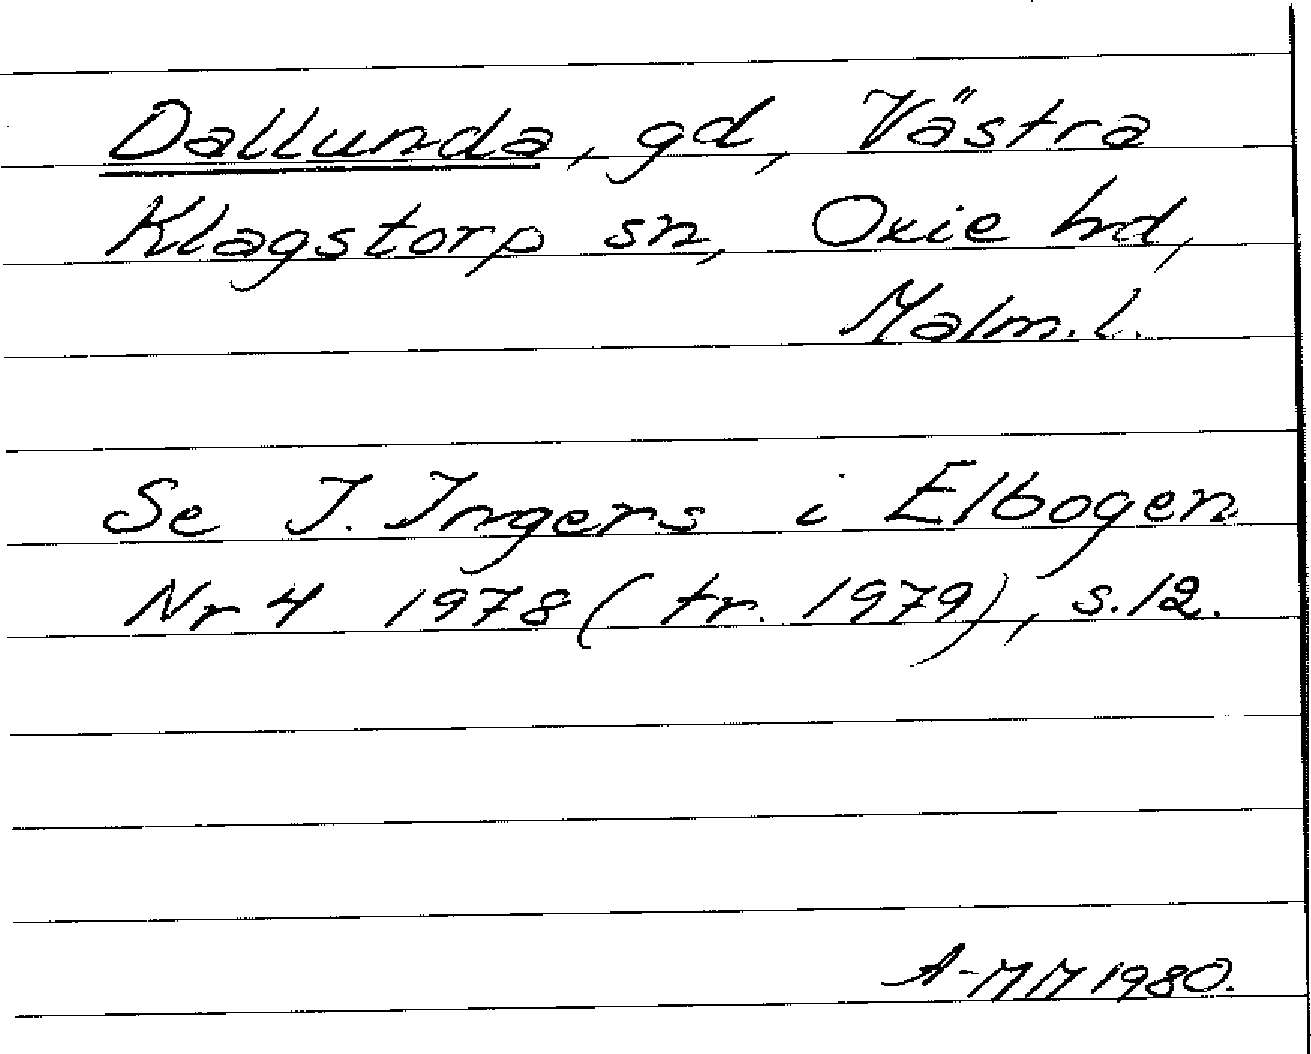 Dallunda, gd, Västra
Klagstorp sn, Oxie hd,
Malm.l.
Se I. Ingers i Elbogen
Nr 4 1978 (tr. 1979), s.12.
A-MM 1980.